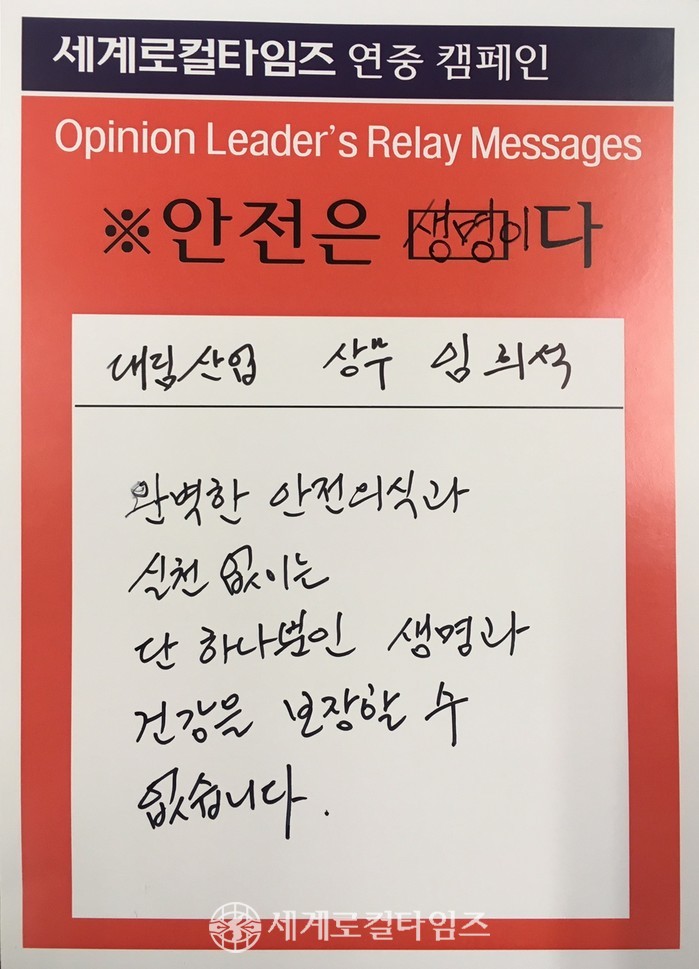 세계로컬타임즈 연중 캠페인
Opinion Leader's Relay Messages
※안전은 생명이다
대림산업 상무 임희석
완벽한 안전의식과
실천 없이는
단 하나뿐인 생명과
건강을 보장할 수
없습니다.
세계로컬타임즈